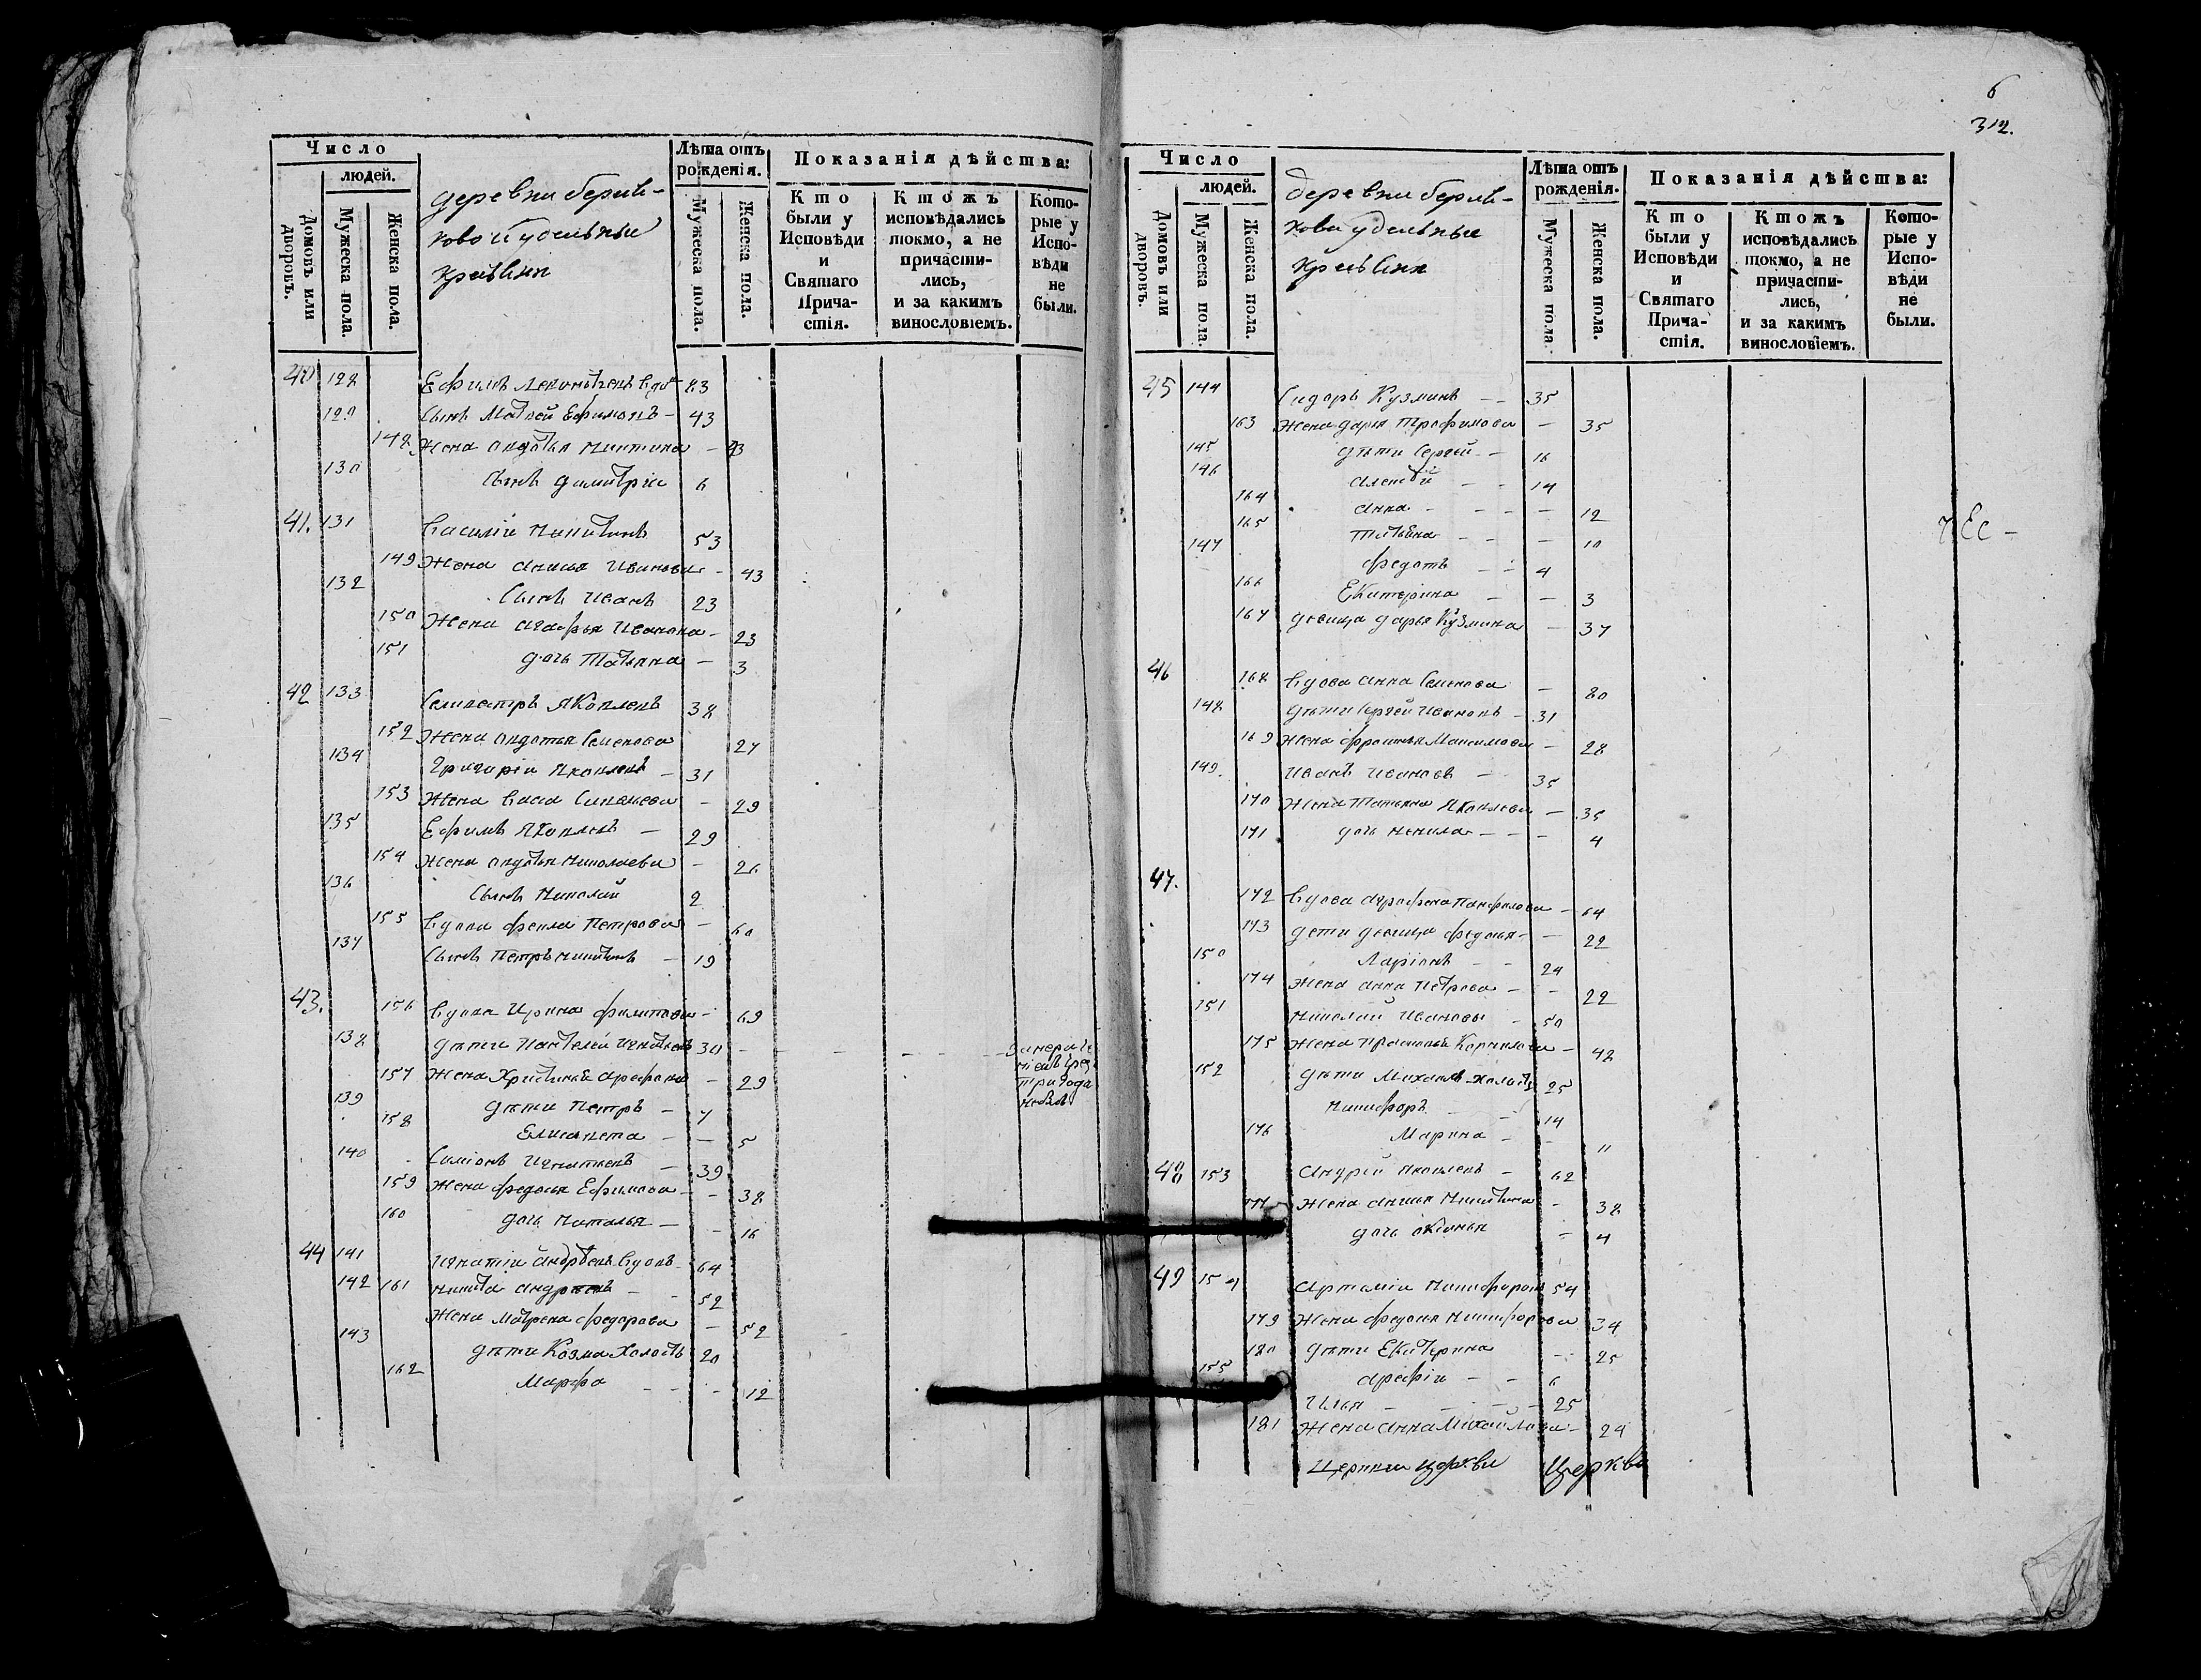 Число
людей.
Домовъ или дворовъ.
Мужеска пола.
Женска пола.
деревни берни-
удельные
Лѣта отъ рожденія.
Мужеска пола.
Женска пола.
Показанія дѣйства:
Кто были у Исповѣди и Святаго Прича-стія.
Ктожъ исповѣдались токмо, а не причасти-лись, и за какимъ винословіемъ.
Кото-рые у Испо-вѣди не были.
40 128 Ефимъ вдо 83
129 Сынъ Матвей Ефимовъ - 43
148 Жена Авдотья Никитина - 43
130 Сынъ Димитріи 6
41. 131 Василіи Никитинъ 53
149 Жена Анисья Иванова - 43
132 Сынъ Иванъ 23
150 Жена Агафья Иванова - 23
151 дочь Татьяна - 3
42 133 Селивестръ Яковлевъ 38
152 Жена Авдотья Семенова 27
134 Григоріи Яковлевъ - 31
153 Жена Васса Савельева - 29
135 Ефимъ Яковлевъ - 29
154 Жена Авдотья Николаева - 26
136 Сынъ Николай 2
155 Вдова Фекла Петрова - 60
137 Сынъ Петръ Никитинъ - 19
43. 156 Вдова Ирина Филипова - 69
138 дѣти Пантелѣй Игнатьевъ 30 - - - -
три года
157 Жена Христинья - 29
139 дѣти Петръ - 7
158 Елисавета - - 5
140 Симіонъ Игнатьевъ - 39
159 Жена Федосья Ефимова - - 38
160 дочь Наталья - - 16
44 141 Игнатіи Андреевъ вдовъ 64
142 161 Никита Андреевъ - - 52
Жена Матрена Федорова - 52
143 дѣти Козма Холостъ 20
162 Марфа - - - 12
6
312.
Число
людей.
Домовъ или дворовъ.
Мужеска пола.
Женска пола.
деревни берни-
кова удельные
Лѣта отъ рожденія.
Мужеска пола.
Женска пола.
Показанія дѣйства:
Кто были у Исповѣди и Святаго Прича-стія.
Ктожъ исповѣдались токмо, а не причасти-лись, и за какимъ винословіемъ.
Кото-рые у Испо-вѣди не были.
45 144 Сидоръ Кузминъ - - 35
163 Жена Дарья Трофимова - 35
145 дѣти Сергей - 16
146 Алексѣй - - 14
164 Анна - - - - 12
165 Татьяна - - - 10
147 Федотъ - - 4
166 Екатерина - - 3
167 девица Дарья Кузмина - 37
46 168 Вдова Анна Семенова - 80
148 дѣти Сергей Ивановъ - 31
169 Жена Максимова - 28
149. Иванъ Ивановъ - 35
170 Жена Татьяна Яковлева - 35
171 дочь Ненила - - - 4
47. 172 Вдова Аграфена Панфилова - 64
173 дети девица Федосья - - 22
150 Ларіонъ - - 24
174 Жена Анна Петрова - - 22
151 Николай Ивановъ - 50
175 Жена Прасковья Корнилова - 42
152 дѣти Михаилъ холостъ 25
Никифоръ - - 14
176 Марина - - 11
48 153 Андрей Яковлевъ - 62
177 Жена Анисья Никитина - 38
дочь Аксинья - 4
49 154 Артеміи Никифоровъ 54
179 Жена Федосья Никифорова 34
180 дѣти Екатерина - 25
155 - - 6
Илья - - - - 25
181 Жена Анна Михайлова - 24
церкви Церкви